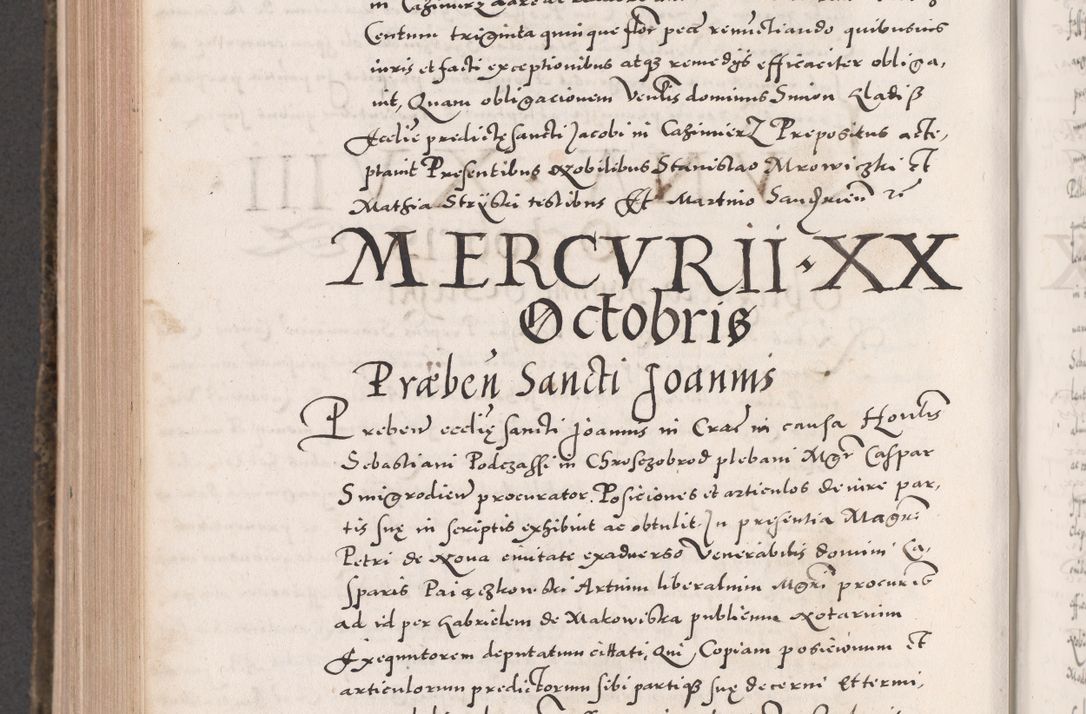 Centum triginta quinque flor pecc renunctiando quibusuis
iuris et facti exceptionibus atqȝ remedijs efficaciter obliga,
uit, Quam obligacionem Venłis dominus Simon Kladiß
Ecclie predictę sancti Jacobi in CaziмierZ Prepositus acte,
ptauit Presentibus Nobilibus Stanislao Mrowiczki Et
Mathia Strÿski testibus Et Martino Sandrien̄ zc
MERCVRII · XX
Octobris
Præben̄ Sancti Joannis
Preben̄ ecclię sancti Joannis in Crac̄ in causa Honłis
Sebastiani Podczassi in Chroſczobrod plebani Mgr̄ Caspar
Smigrodien̄ procurator. Posiciones et articulos de iure par,
tis suę in scriptis exhibuit ac obtulit. In presentia Magrī
Petri de Noua ciuitate exaduerso Venerabilis domini Ca,
sparis Paięczkowski Artium liberalium Mgrī procuris
ad id per Gabrielem de Makowiska publicum Notarium
Exequutorem deputatum cittati, Qui Copiam posicionum Et
articulorum predictorum sibi partiqȝ suę decerni Et termi,